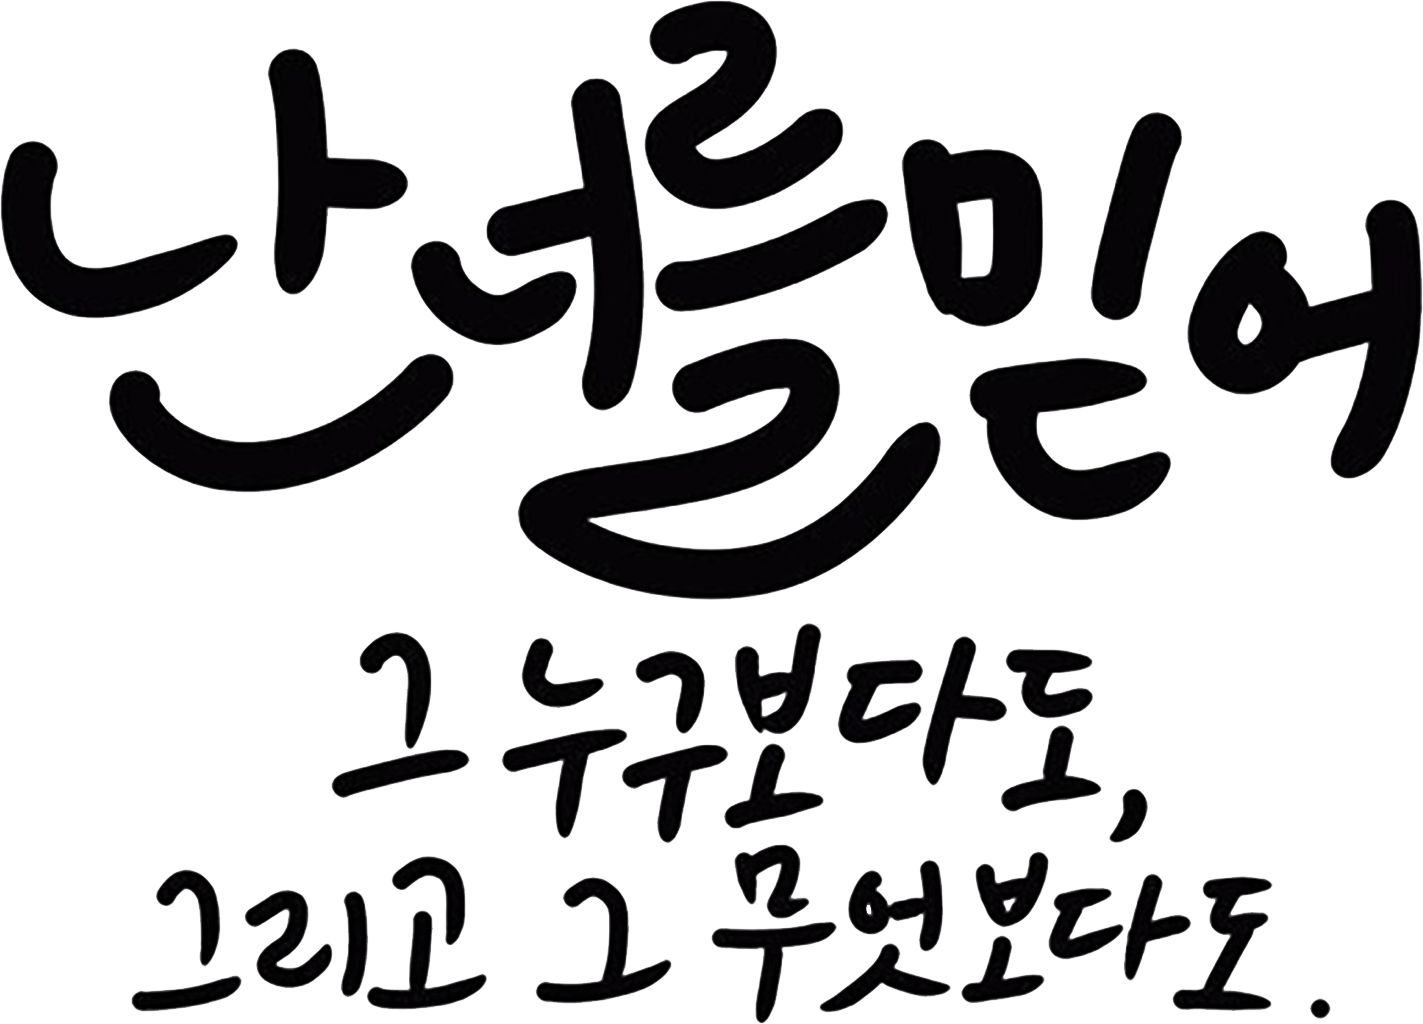 난 너를 믿어
그 누구보다도,
그리고 그 무엇보다도.